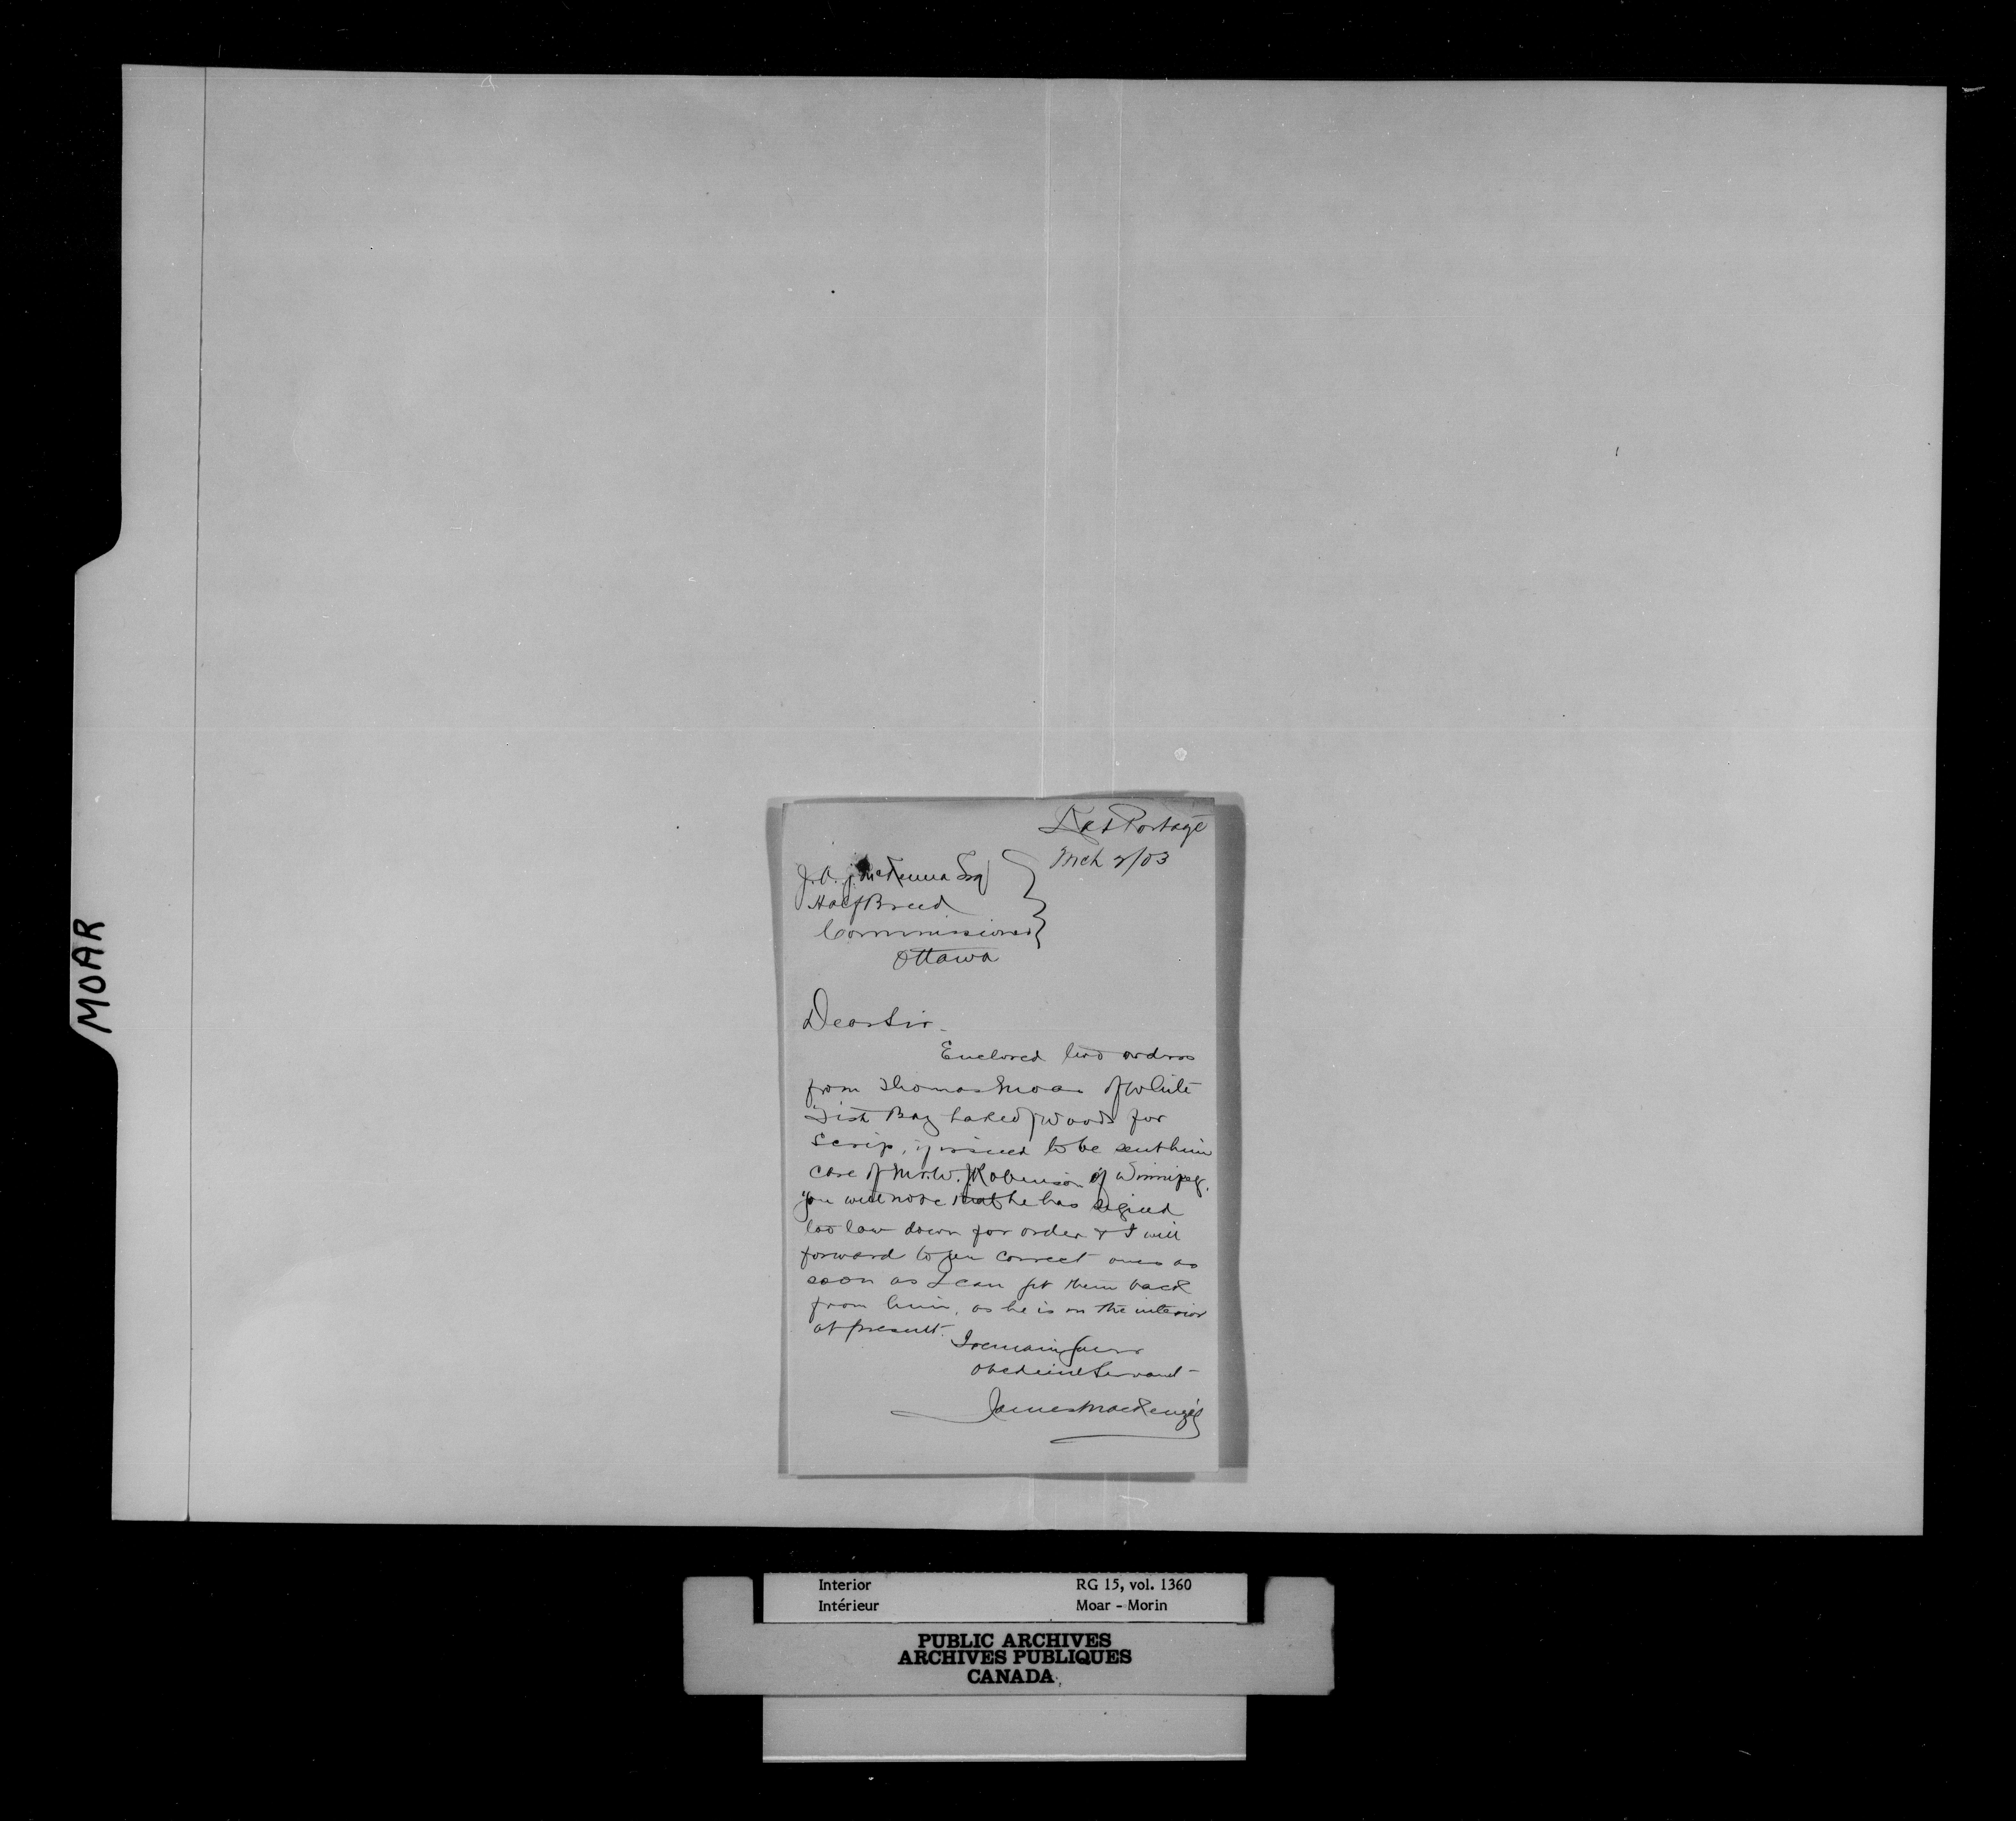 MOAR
Rat Portage
Mch 2/03
J. A. J. McKenna Esq
Half Breed
Commissioner
Ottawa
Dear Sir.
Enclosed two orders
from Thomas Moar of White
Fish Bay Lake of Woods for
Scrip, if issued to be sent him
care of Mr. W. J. Robinson of Winnipeg.
You will note that he has signed
too low down for order & I will
forward to you correct ones as
soon as I can get them back
from him, as he is in the interior
at present.
I remain your
obedient Servant -
James MacKenzie
Interior
Intérieur
RG 15, vol. 1360
Moar - Morin
PUBLIC ARCHIVES
ARCHIVES PUBLIQUES
CANADA